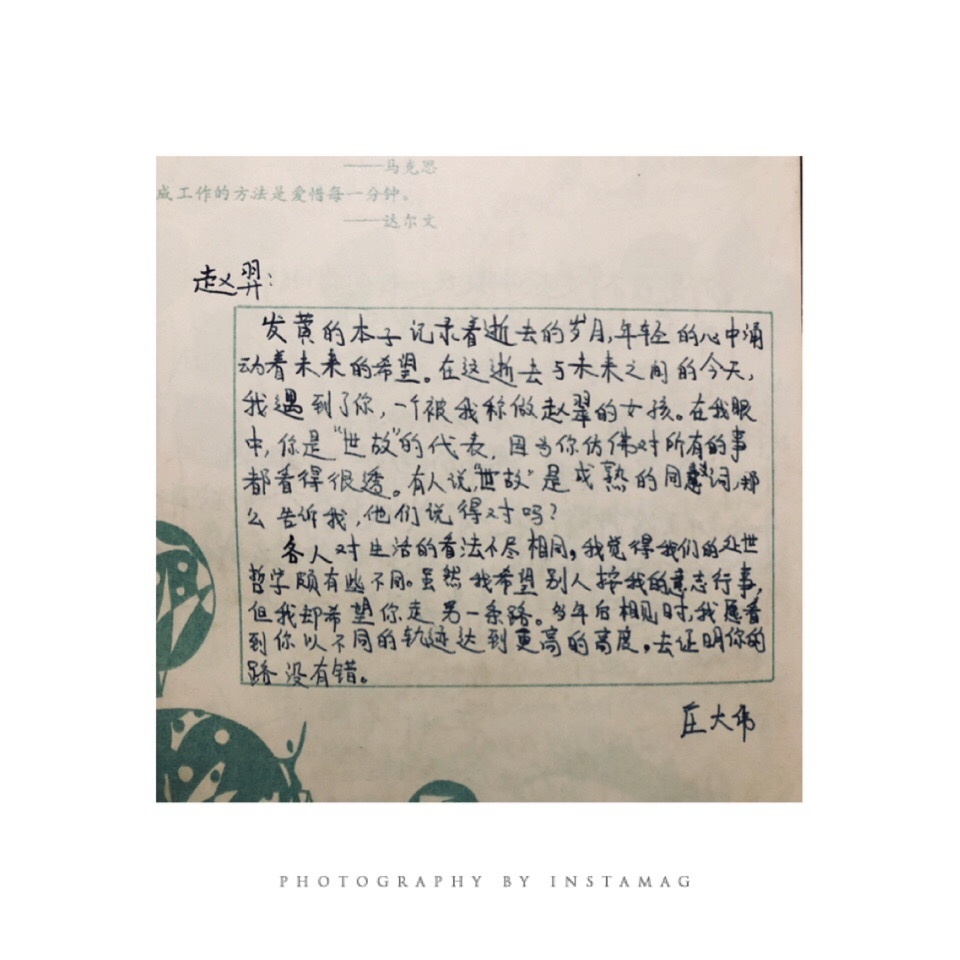 ——马克思
成工作的方法是爱惜每一分钟。
——达尔文
赵羿:
发黄的本子记录着逝去的岁月,年轻的心中涌
动着未来的希望。在这逝去与未来之间的今天,
我遇到了你,一个被我称做赵翠的女孩。在我眼
中,你是“世故”的代表,因为你仿佛对所有的事
都看得很透。有人说,“世故”是成熟的同义词,那
么告诉我,他们说得对吗?
各人对生活的看法不尽相同。我觉得我们的处世
哲学颇有些不同。虽然我希望别人按我的意志行事,
但我却希望你走另一条路。当年后相见时,我愿看
到你以不同的轨迹达到更高的高度。去证明你的
路没有错。
庄大伟
PHOTOGRAPHY BY INSTAMAG